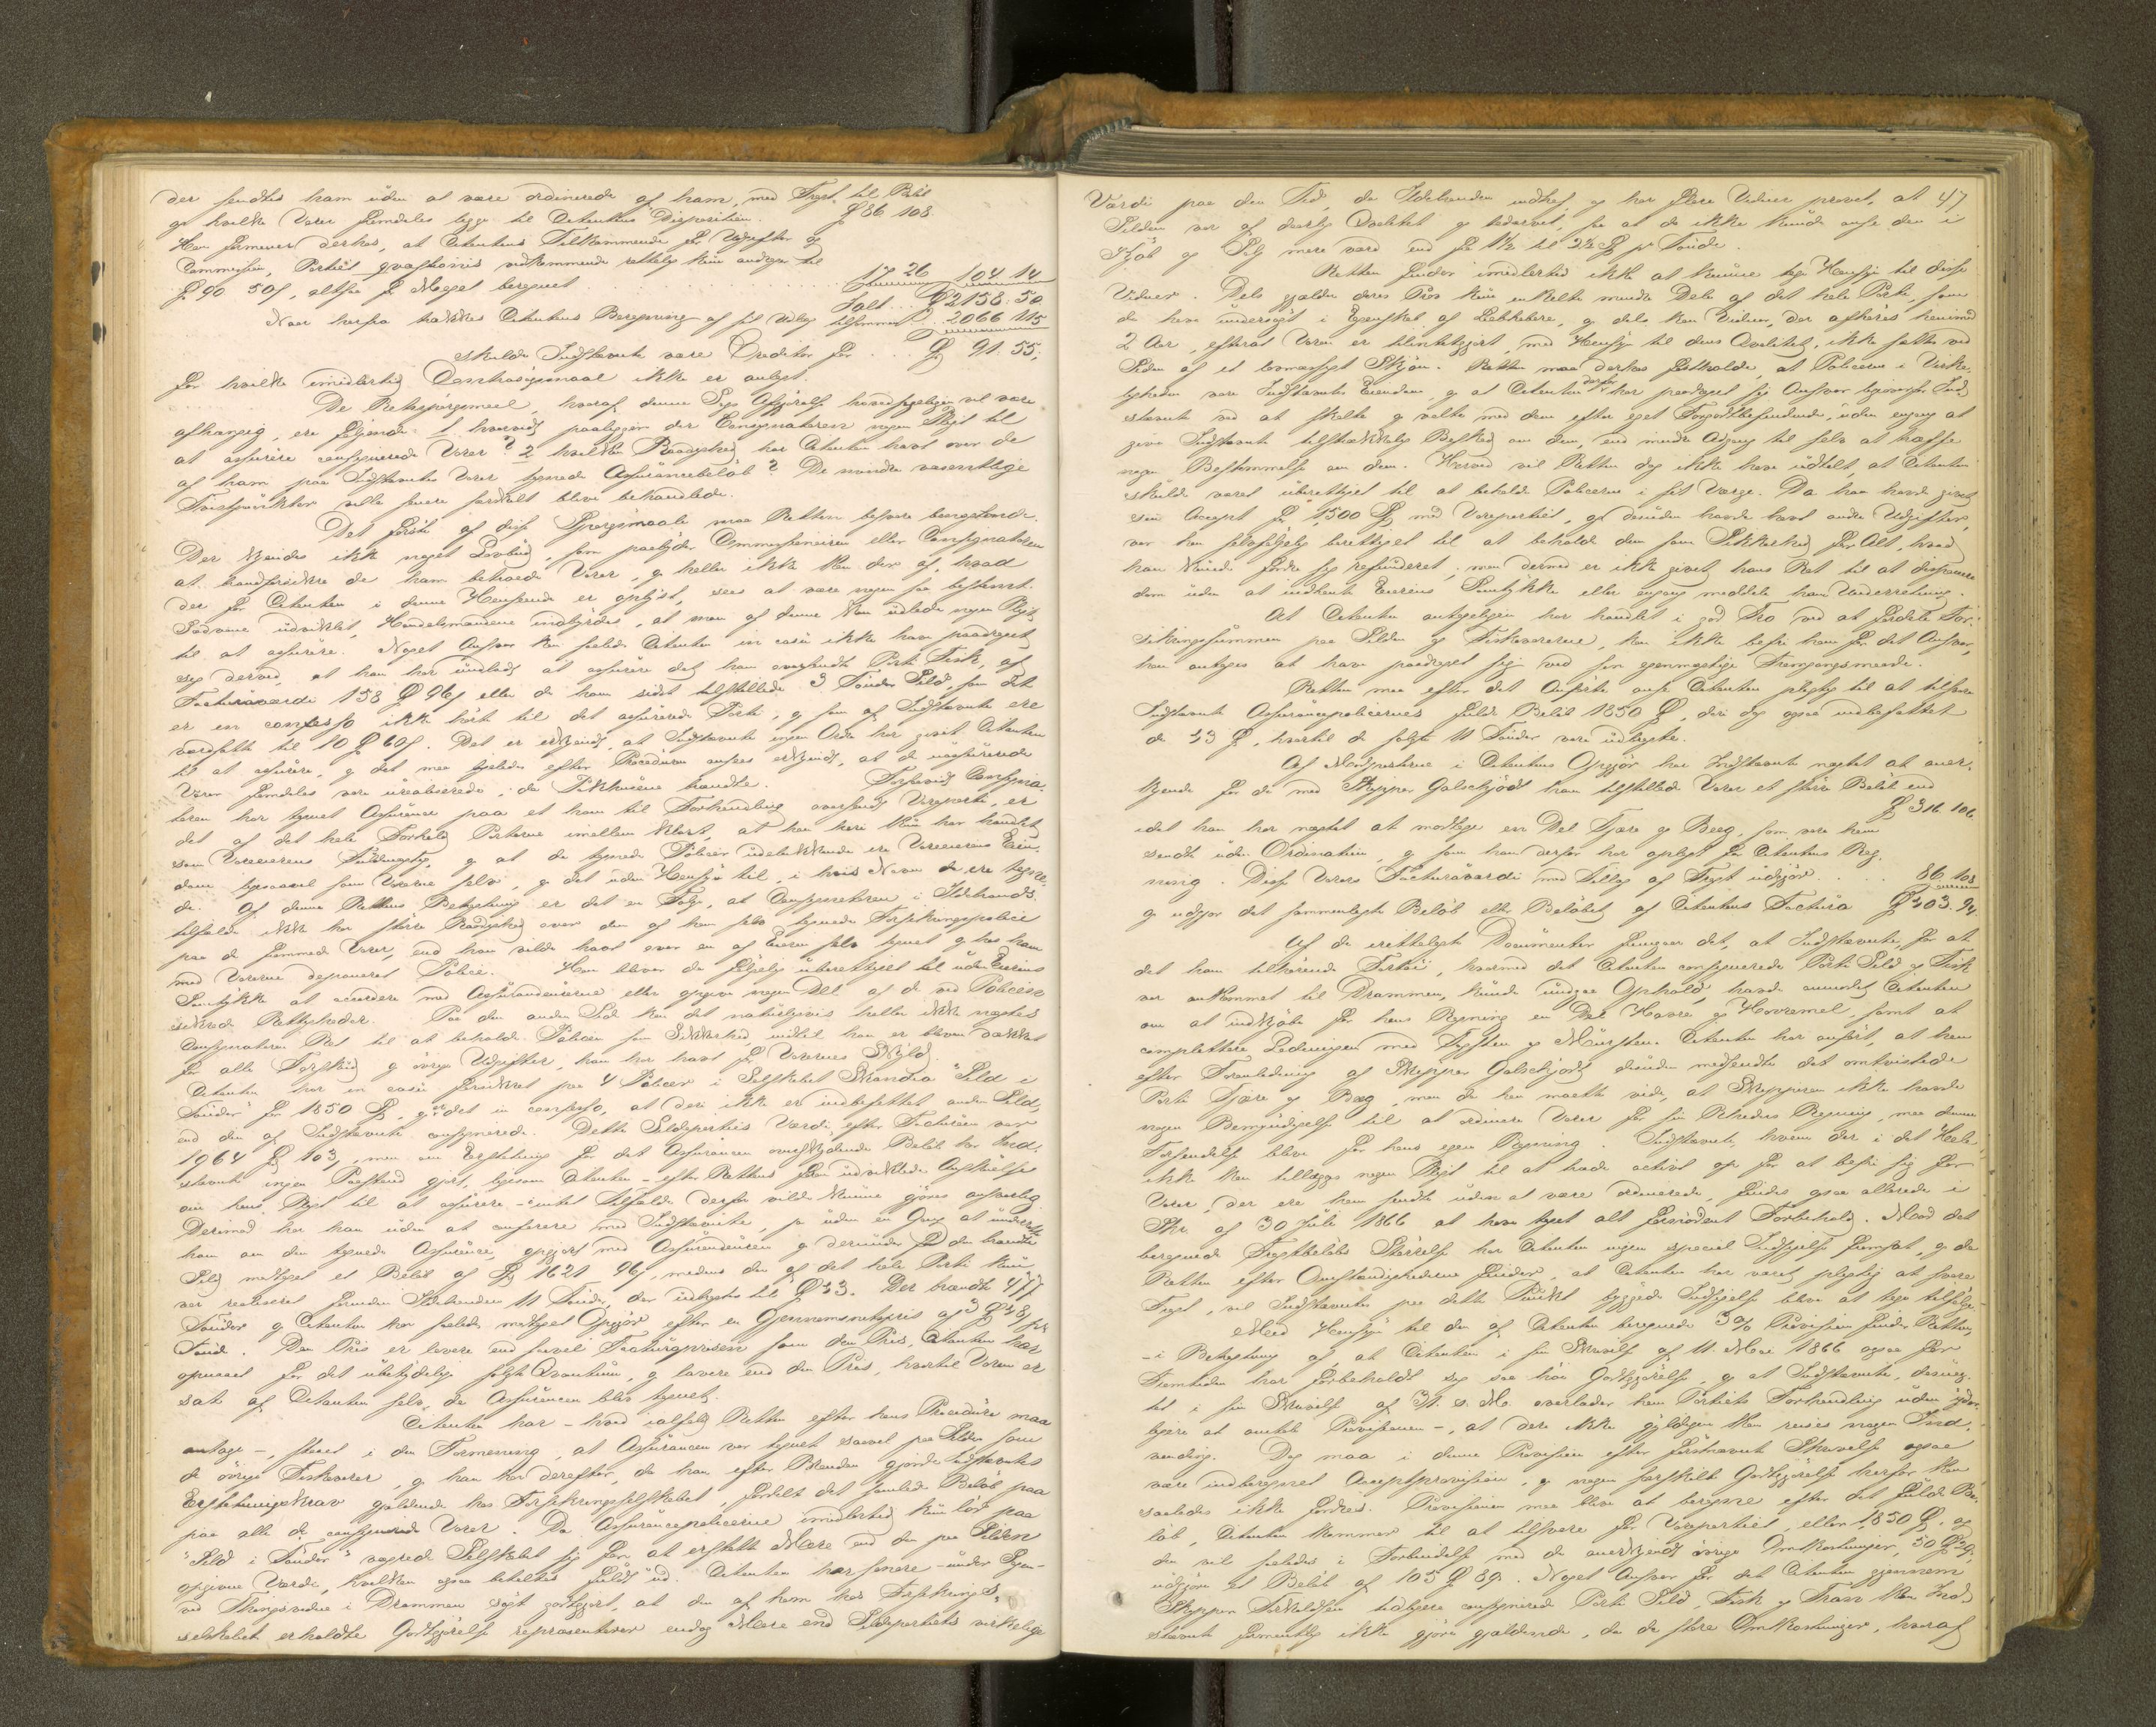 der sendtes ham uden at være ordinerede af ham, med Fragt til Beløb
og hvilke Varer fremdeles ligge til Citantens Disposition. 86 108
Han formener derhos, at Citantens Tilkommende for Udgifter og
Commission, Partiet qvæstionis vedkommende rettelig kun andrager til
90 50, altsaa for Meget beregnet 17 26 104 14
Ialt 2158. 50
Naar herfra trækkes Citantens Beregning af sit Udlæg tilsammen 2066 115
skulde Indstævnte være Creditor for 91. 55.
for hvilke imidlertid Contrasøgsmaal ikke er anlagt.
De Retsspørgsmaal, hvoraf denne Sags Afgjørelse hovedsageligen vil være
afhængig, ere følgende: 1 hvorvidt paaligger der Consignataren nogen Pligt til
at assurere consignerede Varer? 2 hvilken Raadighed har Citanten havt over de
af ham paa Indstævntes Varer tegnede Assurancebeløb? De mindre væsentlige
Tvistpunkter ville senere særskilt blive behandlede.
Det første af disse Spørgsmaale maa Retten besvare benegtende.
Der kjendes ikke noget Lovbud, som paabyder Commissionairen eller Consignataren
at brandforsikre de ham betroede Varer, og heller ikke kan der af, hvad
der for Citanten i denne Henseende er oplyst, sees at være nogen saa bestemt
Sædvane udviklet, Handelsmændene indbyrdes, at man af denne kan udlede nogen Pligt
til at assurere. Noget Ansvar kan saaledes Citanten in casu ikke have paadraget
sig derved, at han har undladt at assurere det ham oversendte Parti Fisk, af
Facturaværdi 158 96 eller de ham sidst tilstillede 3 Tønder Sild, som det
er en confesso ikke hørt til det assurerede Parti, og som af Indstævnte ere
værdsatte til 10 60. Det er erkjendt, at Indstævnte ingen Ordre har givet Citanten
til at assurere, og det maa ligeledes efter Proceduren ansees erkjendt, at de uassurerede
Varer fremdeles vare urealiserede, da Pakhusene brændte. Forsaavidt Consigna-
taren har tegnet Assurance paa et ham til Forhandling oversendt Vareparti, er
det af det hele Forhold Parterne imellem klart, at han heri kun har handlet
som Vareeierens Fuldmægtig, og at de tegnede Policer udelukkende ere Vareeierens Eien-
dom ligesaavel som Varerne selv, og det uden Hensyn til, i hvis Navn de ere tegne-
de. Af denne Rettens Betragtning er det en Følge, at Consignataren i Ildebrands-
tilfælde ikke har større Raadighed over den af ham selv tegnede Forsikringspolice
paa de fremmede Varer, end han vilde havt over en af Eieren selv tegnet og hos ham
med Varerne deponeret Police. Han bliver da følgelig uberettiget til uden Eierens
Samtykke at accordere med Assurandeurerne eller opgive nogen Del af de ved Policen
sikrede Rettigheder. Paa den anden Side kan det naturligvis heller ikke nægtes
Consignataren Ret til at beholde Policen som Sikkerhed, indtil han er bleven dækket
for alle Forskud og øvrige Udgifter, han har havt for Varernes Skyld.
Citanten har in casu forsikret paa 4 Policer i Selskabet Skandia "Sild i
Tønder" for 1850, og er det in confesso, at deri ikke er indbefattet anden Sild,
end den af Indstævnte consignerede. Dette Sildepartis Værdi efter Facturaen var
1964 103, men om Erstatning for det Assurancen overskydende Beløb har Ind-
stævnte ingen Paastand gjort, ligesom Citanten – efter Rettens foran udviklede Anskuelse
om hans Pligt til at assurere – i intet Tilfælde derfor vilde kunne gjøres ansvarlig.
Derimod har han uden at conferere med Indstævnte, ja uden en Gang at underrette
ham om den tegnede Assurance, opgjort med Assurandeuren og derunder for den brændte
Sild modtaget et Beløb af 1621 96, medens der af det hele Parti kun
var realiseret forinden Ildebranden 11 Tønder, der udbragtes til 43. Der brændte 477
Tønder og Citanten har saaledes modtaget Opgjør efter en Gjennemsnitspris af 3 48 pr
Tønde. Den Pris er lavere end saavel Facturaprisen som den Pris, Citanten har
opnaaet for det ubetydelige solgte Qvantum, og lavere end den Pris, hvortil Varen er
sat af Citanten selv, da Assurancen blev tegnet.
Citanten har – hvad ialfald Retten efter hans Procedure maa
antage –, staaet i den Formening, at Assurancen var tegnet saavel paa Silden som
de øvrige Fiskevarer, og han har derefter, da han efter Branden gjorde Indstævntes
Erstatningskrav gjældende hos Forsikringsselskabet, fordelt det samlede Beløb paa
paa alle de consignerede Varer. Da Assurancepolicerne imidlertid kun lød paa
"Sild i Tønder" vægrede Selskabet sig for at erstatte Mere end den paa Silden
opgivne Værdi, hvilken ogsaa betaltes fuldt ud. Citanten har senere under Sagen
ved Thingsvidne i Drammen søgt godtgjort, at den af ham hos Forsikrings-
selskabet erholdte Godtgjørelse repræsenterer endog Mere end Sildepartiets virkelige
47
Værdi paa den Tid, da Ildebranden indtraf, og har flere Vidner prøvet, at
Silden var af daarlig Qvalitet og bedærvet, saa at de ikke kunde anse den i
Kjøb og Salg mere værd end fra 1½ til 2½ pr Tønde.
Retten finder imidlertid ikke at kunne tage Hensyn til disse
Vidner. Dels gjælder deres Prov kun enkelte mindre Dele af det hele Parti, som
de have undersøgt i Egenskab af Liebhabere, og dels kan Vidner, der afhøres henimod
2 Aar, efterat Varen er tilintetgjort, med Hensyn til dens Qvalitet, ikke sættes ved
Siden af et lovmæssigt Skjøn. Retten maa derhos fastholde, at Policerne i Virke-
ligheden vare Indstævntes Eiendom, og at Citanten derfor har paadraget sig Ansvar ligeoverfor Ind-
stævnte ved at skalte og valte med dem efter eget Forgodtbefindende, uden engang at
give Indstævnte tilstrækkelig Besked om dem, end mindre Adgang til selv at træffe
nogen Bestemmelse om dem. Herved vil Retten dog ikke have udtalt, at Citanten
skulde været uberettiget til at beholde Policerne i sit Værge. Da han havde givet
sin Accept for 1500 mod Varepartiet, og desuden havde havt andre Udgifter,
var han selvfølgelig berettiget til at beholde dem som Sikkerhed for Alt, hvad
han kunde fordre sig refunderet; men dermed er ikke givet hans Ret til at disponere
dem uden at indhente Eierens Samtykke eller engang meddele ham Underretning.
At Citanten antageligen har handlet i god Tro ved at fordele For-
sikringssummen paa Silden og Fiskevarerne, kan ikke befri ham for det Ansvar,
han antages at have paadraget sig ved sin egenmægtige Fremgangsmaade.
Retten maa efter det Anførte anse Citanten pligtig til at tilsvare
Indstævnte Assurancepolicernes fulde Beløb 1850, deri dog ogsaa indbefattet
de 43, hvortil de solgte 11 Tønder vare udbragte.
Af Modposterne i Citantens Opgjør har Indstævnte nægtet at aner-
kjende for de med Skipper Galschjødt ham tilstillede Varer et større Beløb end
316. 106.
idet han har nægtet at modtage en Del Tjære og Beeg, som vare ham
sendte uden Ordination, og som han derfor har oplagt for Citantens Reg-
ning. Disse Varers Facturaværdi med Tillæg af Fragt udgjør 86 108
og udgjør det sammenlagte Beløb eller Beløbet af Citantens Factura 403. 94.
Af de irettelagte Documenter fremgaar det, at Indstævnte, for at
det ham tilhørende Fartøi, hvormed det Citanten consignerede Parti Sild og Fisk
var ankommet til Drammen, kunde undgaa Ophold, havde anmodet Citanten
om at indkjøbe for hans Regning en Del Havre og Havremel, samt at
complettere Ladningen med Tagsten og Mursten. Citanten har anført, at han
efter Foranledning af Skipper Galschjødt desuden medsendte det omtvistede
Parti Tjære og Beg, men da han maatte vide, at Skipperen ikke havde
nogen Bemyndigelse til at ordinere Varer for sin Rheders Regning, maa denne
Forsendelse blive for hans egen Regning. Indstævnte, hvem der i det Hele
ikke kan tillægges nogen Pligt til at træde activt op for at befri sig for
Varer, der ere ham sendte uden at være ordinerede, findes ogsaa allerede i
Skr. af 30 Juli 1866 at have taget alt fornødent Forbehold. Mod det
beregnede Fragtbeløbs Størrelse har Citanten ingen special Indsigelse fremsat, og da
Retten efter Omstændighederne finder, at Citanten har været pligtig at svare
Fragt, vil Indstævntes paa dette Punkt byggede Indsigelse blive at tage tilfølge.
Med Hensyn til den af Citanten beregnede 3% Provision finder Retten,
– i Betragtning af, at Citanten i sin Skrivelse af 11. Mai 1866 ogsaa for
Fremtiden har forbeholdt sig saa høi Godtgjørelse, og at Indstævnte, desuag-
tet i sin Skrivelse af 31. s. M. overlader ham Partiets Forhandling uden yder-
ligere at omtale Provisionen –, at der ikke gyldigen kan reises nogen Ind-
vending. Dog maa i denne Provision efter førstnævnte Skrivelse ogsaa
være indberegnet Acceptprovision, og nogen særskilt Godtgjørelse herfor kan
saaledes ikke fordres. Provisionen maa blive at beregne efter det fulde Be-
løb, Citanten kommer til at tilsvare for Varepartiet, eller 1,850, og
den vil saaledes i Forbindelse med de anerkjendte øvrige Omkostninger, 50
udgjøre et Beløb af 105 89. Noget Ansvar for det Citanten gjennem
Skipper Torkildsen tidligere consignerede Parti Sild, Fisk og Tran kan Ind-
stævnte formentlig ikke gjøre gjældende, da de store Omkostninger, hvoraf